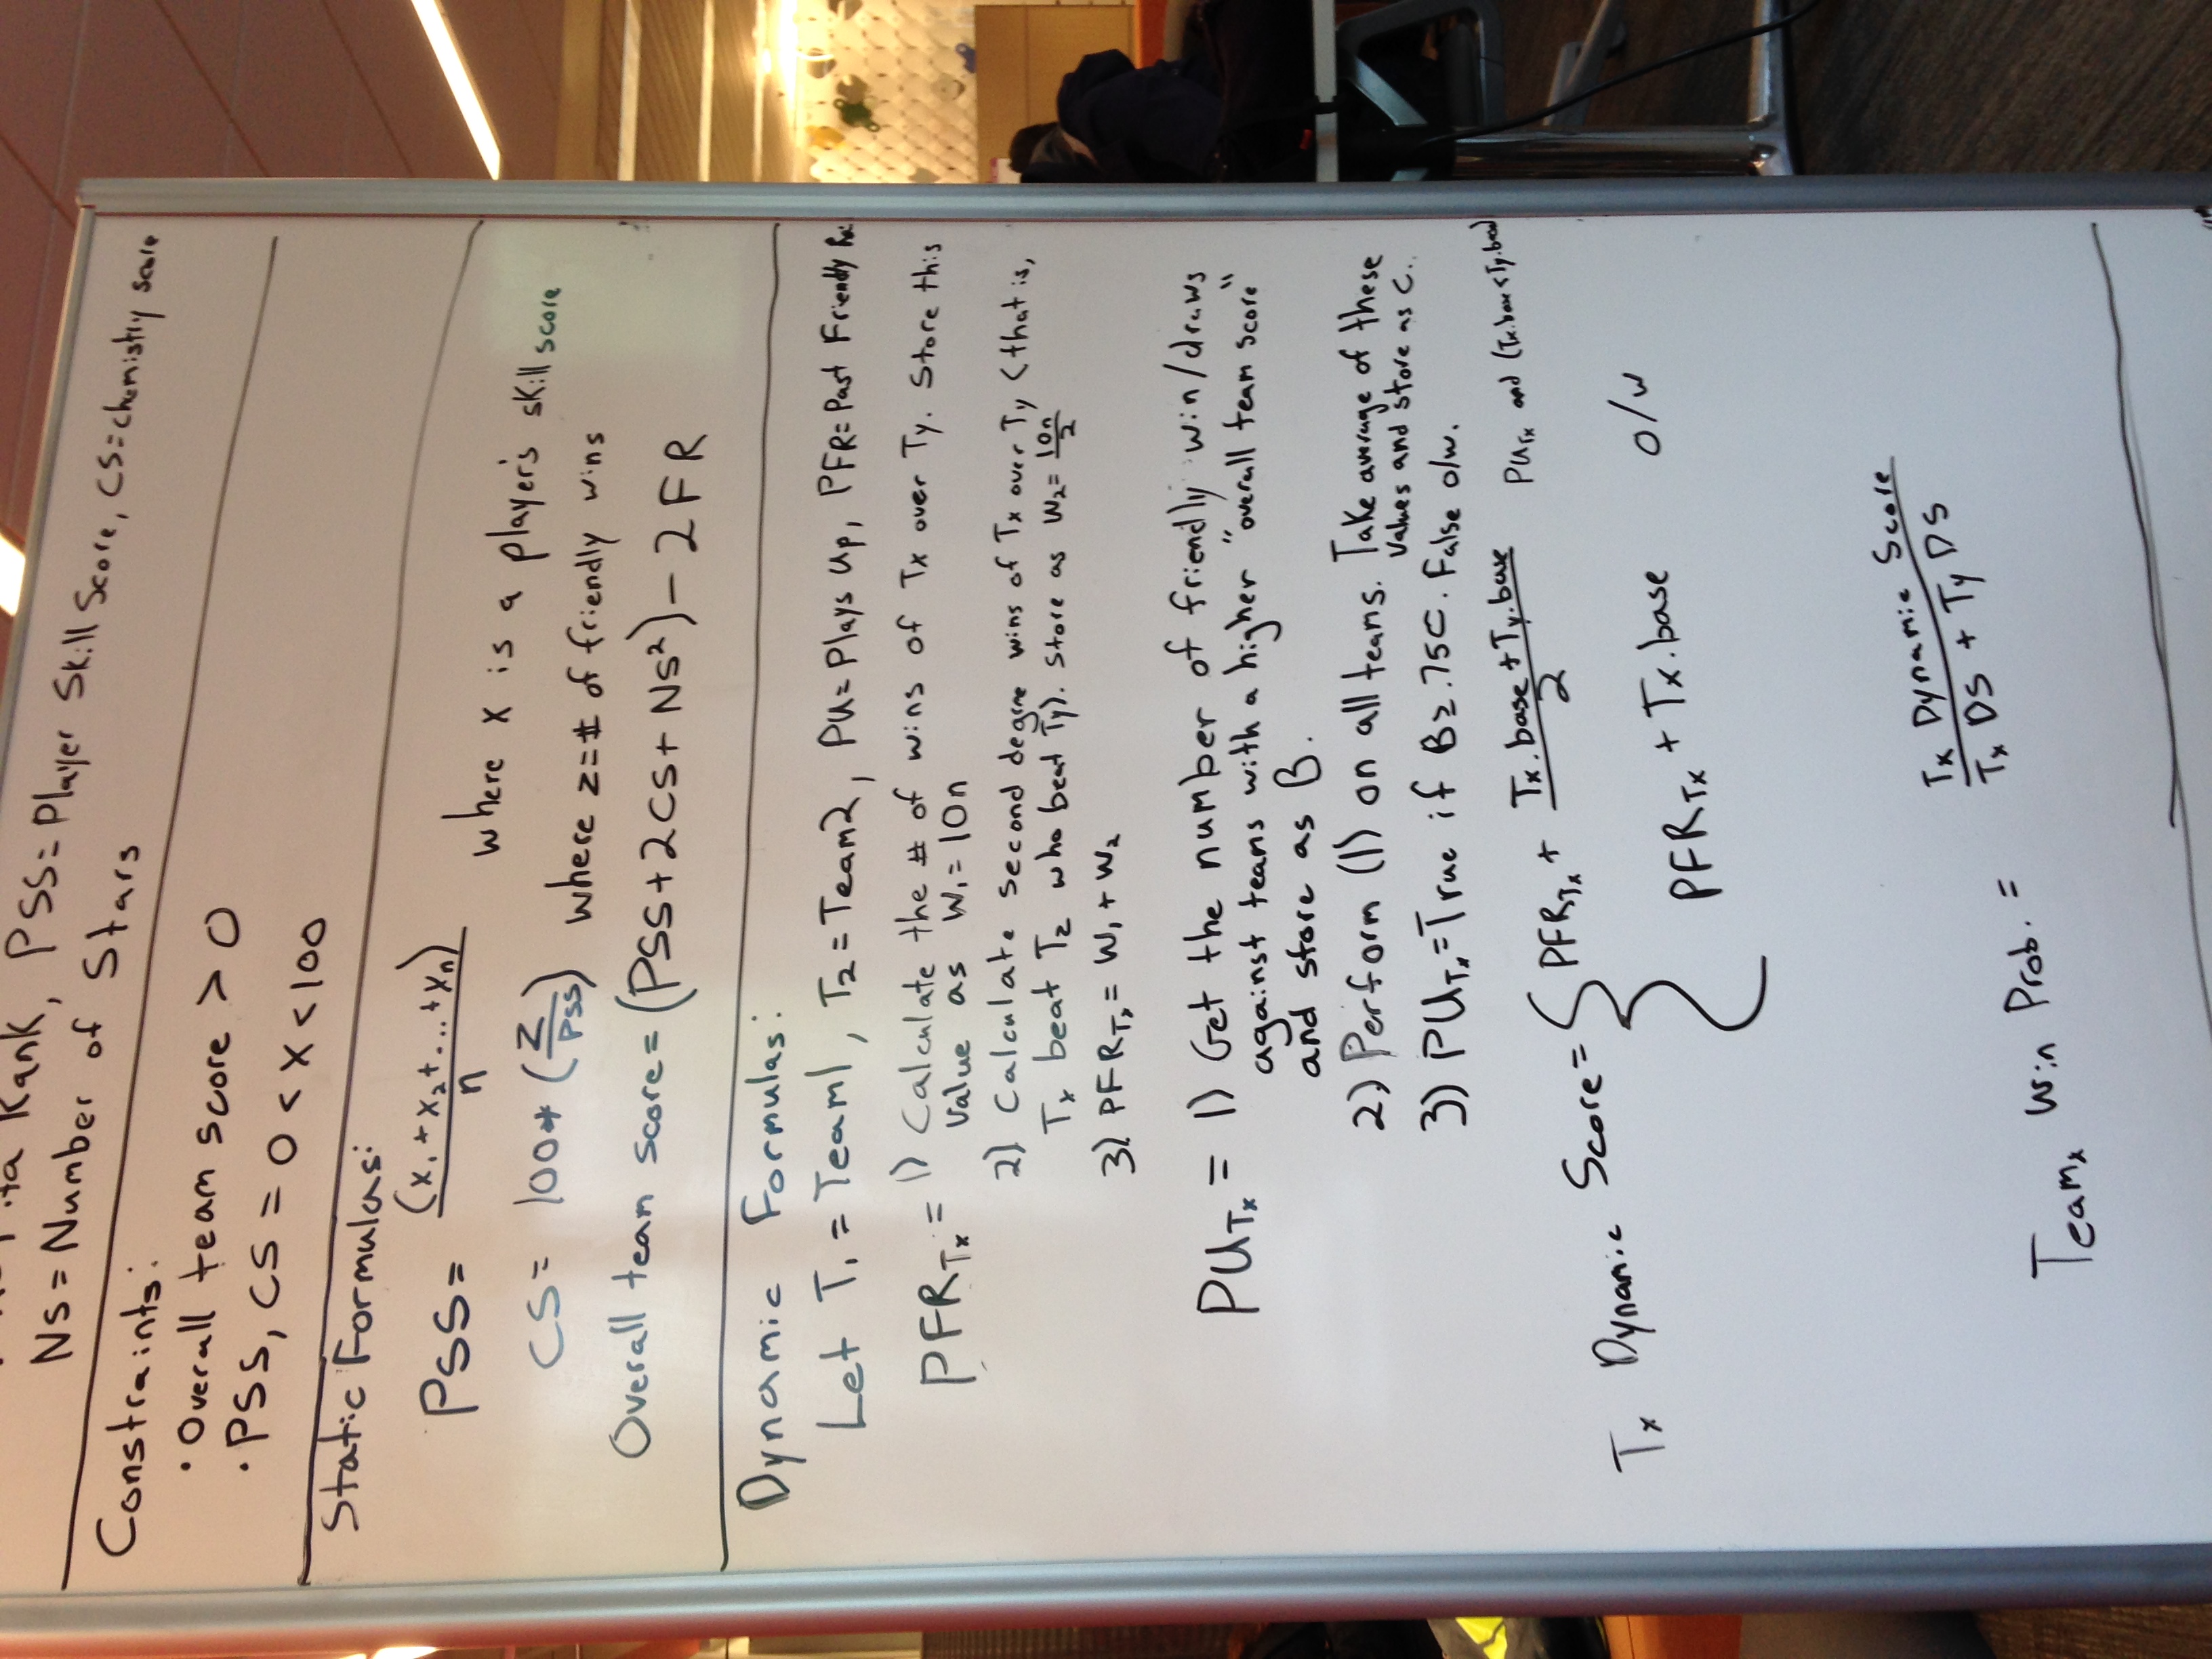 Rank, PSS= Player Skill Score, CS= chemistry score
NS = Number of Stars
Constraints:
• Overall team score > 0
• PSS, CS = 0 < X < 100
Static Formulas:
PSS = (x₁ + x₂ + ... + xₙ) / n where x is a player's skill score
CS = 100 * (Z / PSS) where z = # of friendly wins
Overall team score = (PSS + 2CS + NS²) - 2FR
Dynamic Formulas:
Let T₁ = Team1, T₂ = Team2, PU = Plays Up, PFR = Past Friendly
PFR_Tx = 1) Calculate the # of wins of Tx over Ty. Store this
value as W₁ = 10n
2) Calculate second degree wins of Tx over Ty (that is,
Tx beat Tz who beat Ty). Store as W₂ = 10n / 2
3) PFR_Tx = W₁ + W₂
PU_Tx = 1) Get the number of friendly win/draws
against teams with a higher "overall team score"
and store as B.
2) Perform (1) on all teams. Take average of these
values and store as C.
3) PU_Tx = True if B ≥ .75C. False o/w.
Tx Dynamic Score = { PFR_Tx + (Tx.base + Ty.base) / 2 PU_Tx and (Tx.base < Ty.base)
PFR_Tx + Tx.base o/w
Teamx Win Prob. = Tx Dynamic Score / (Tx DS + Ty DS)